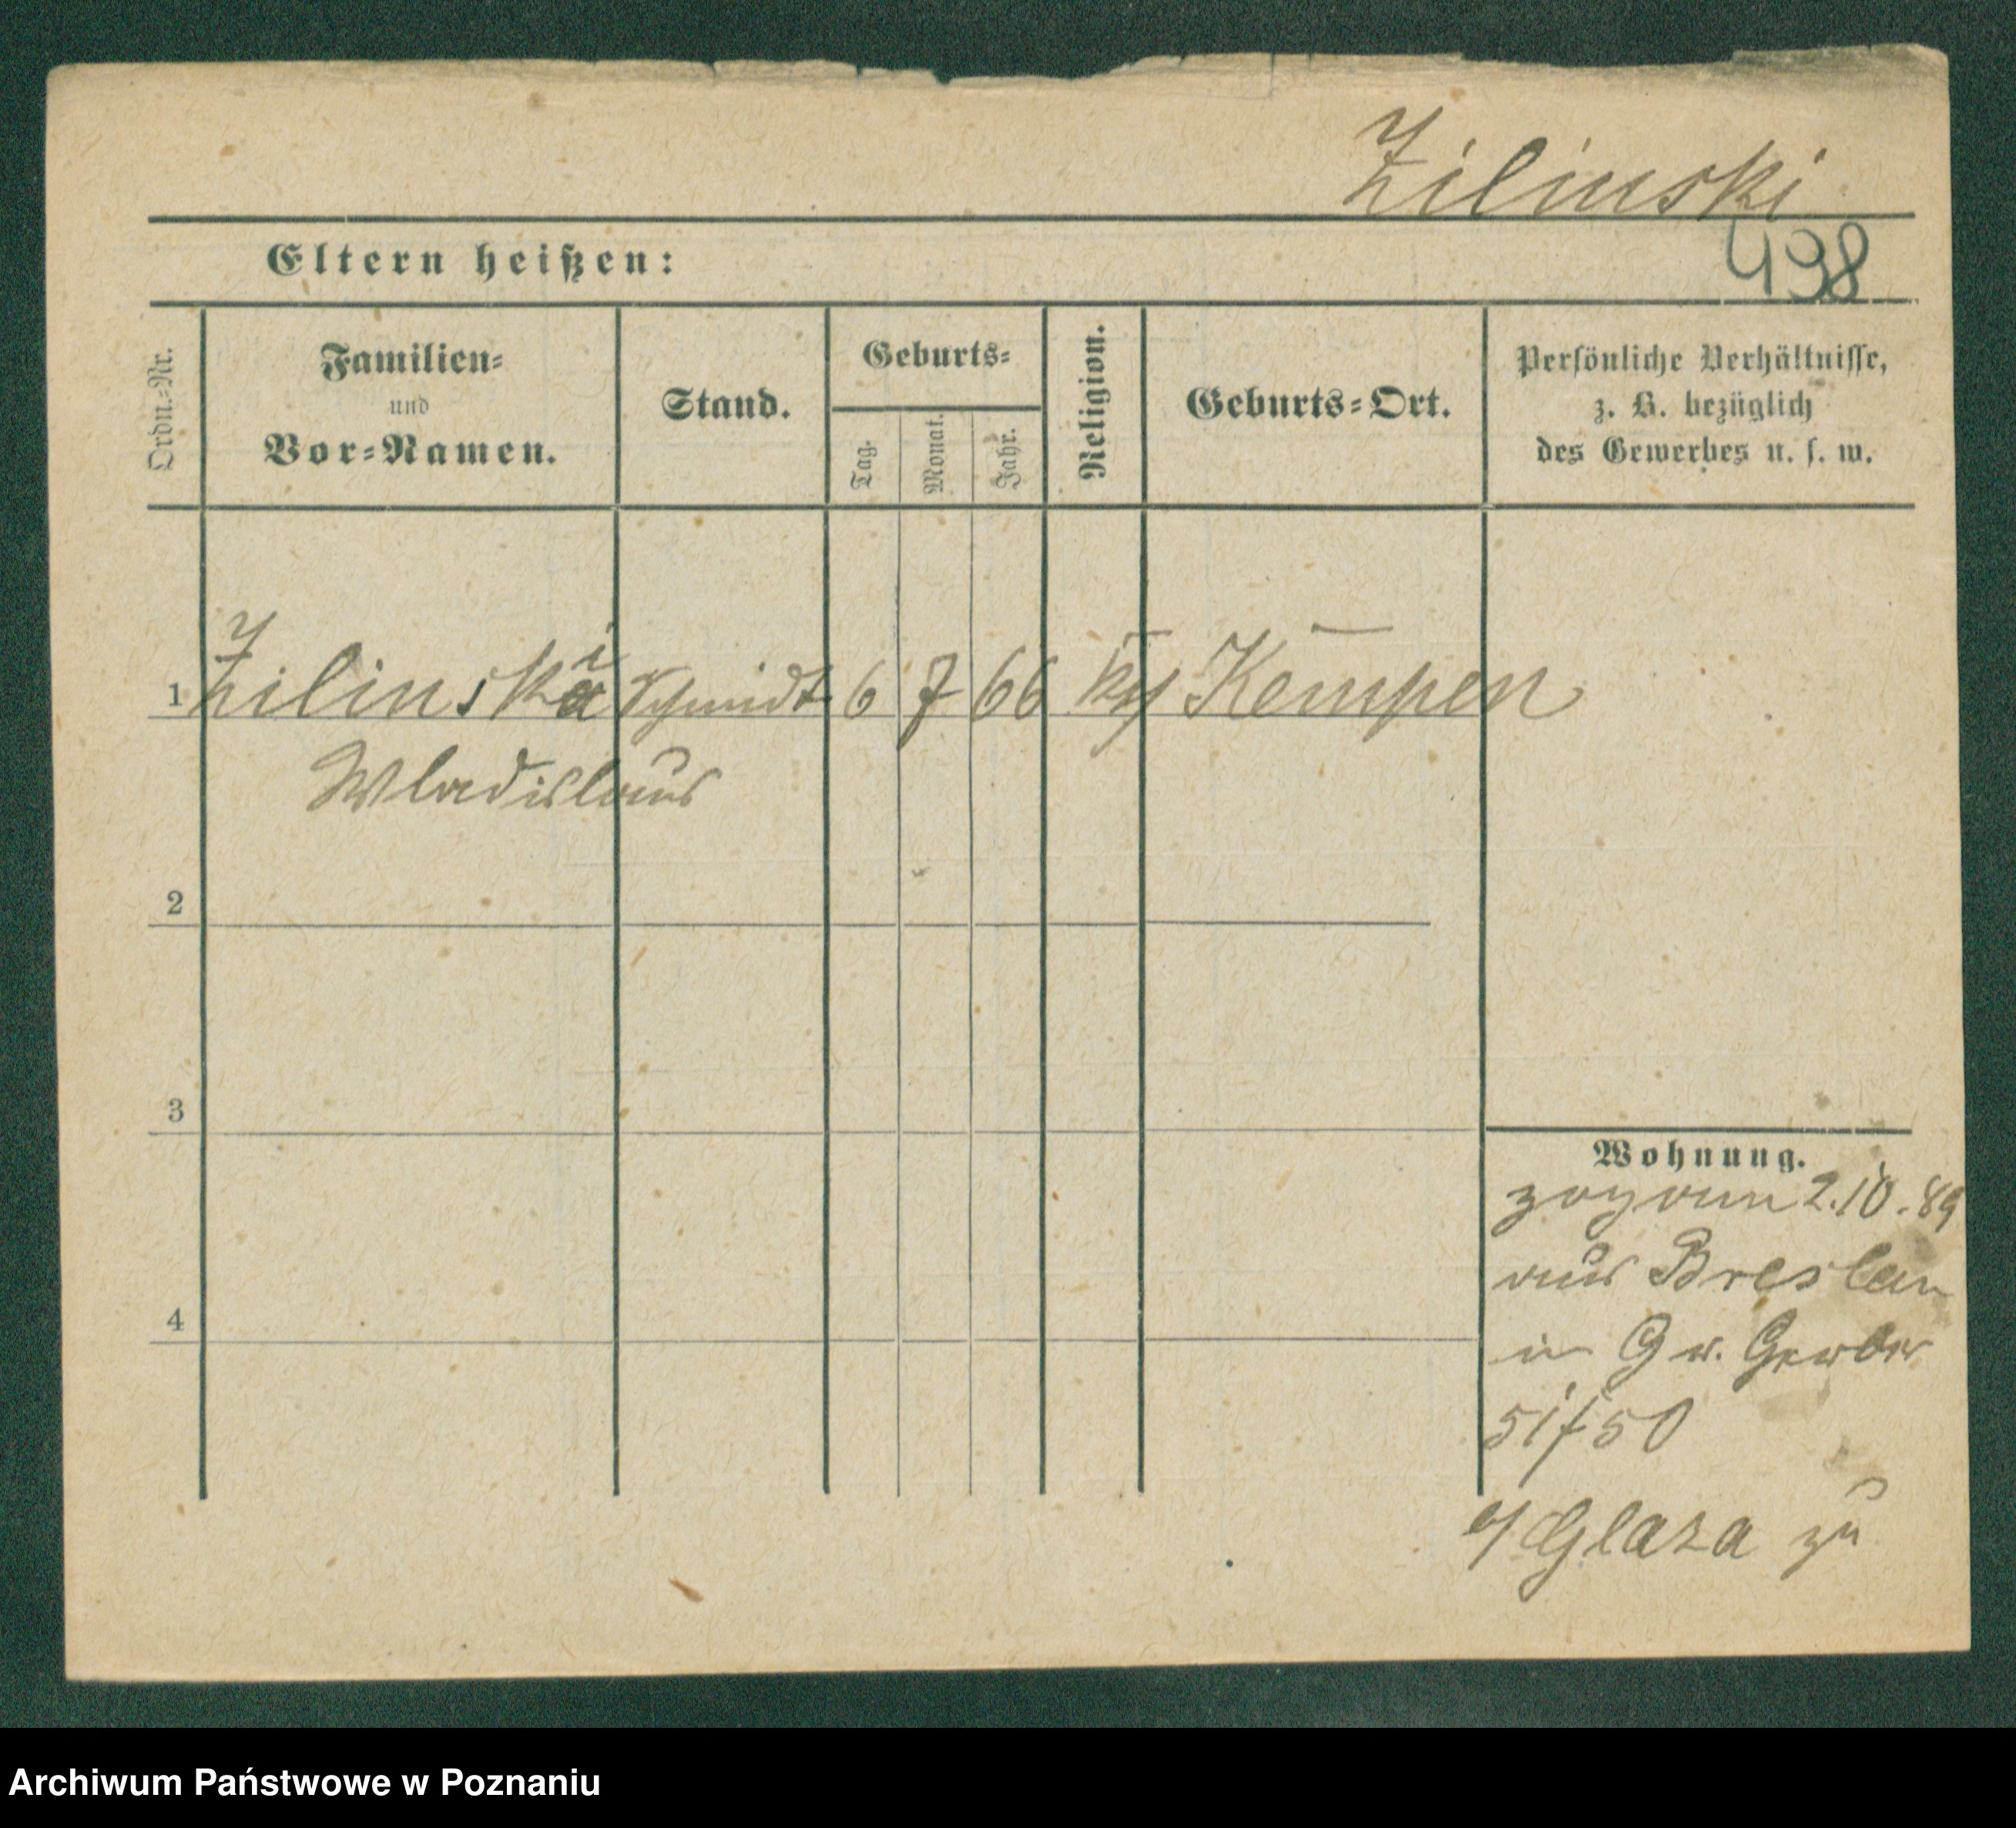 Zilinski
Eltern heißen:
498
Ordn.-Nr.
Familien-
und
Vor-Namen.
Stand.
Geburts-
Tag.
Monat.
Jahr.
Religion.
Geburts-Ort.
Persönliche Verhältnisse,
z. B. bezüglich
des Gewerbes u. s. w.
1 Zilinski Schmidt 6 7 66 Kempen
Wladislaus
2
3
4
Wohnung.
zog am 2.10.89
aus Breslau
in Gr. Gerber
51 50
Glaza zu
Archiwum Państwowe w Poznaniu